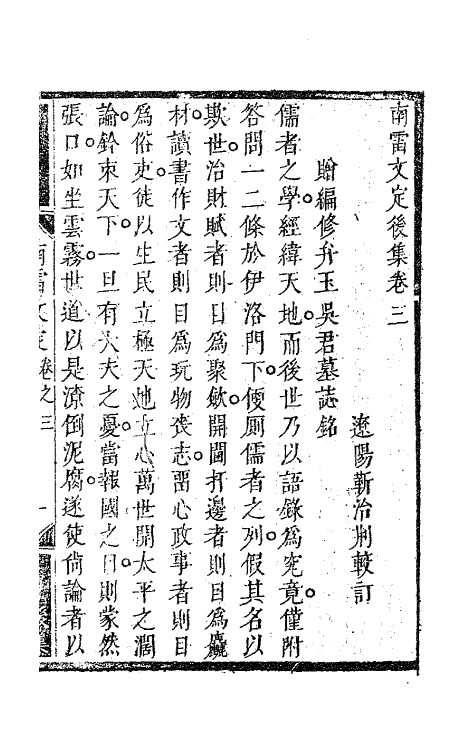 南雷文定後集卷三
遼陽靳治荆較訂
贈編修弁玉吳君墓誌銘
儒者之學。經緯天地。而後世乃以語錄爲究竟。僅附
答問一二條於伊洛門下。便厠儒者之列。假其名以
欺世。治財賦者則目爲聚歛。開閫扞邊者則目爲麤
材。讀書作文者則目爲玩物喪志。留心政事者則目
爲俗吏。徒以生民立極天地立心萬世開太平之濶
論。鈐束天下。一旦有大夫之憂。當報國之日。則蒙然
張口。如坐雲霧。世道以是潦倒泥腐。遂使尙論者以
南雷文定 卷之三 一